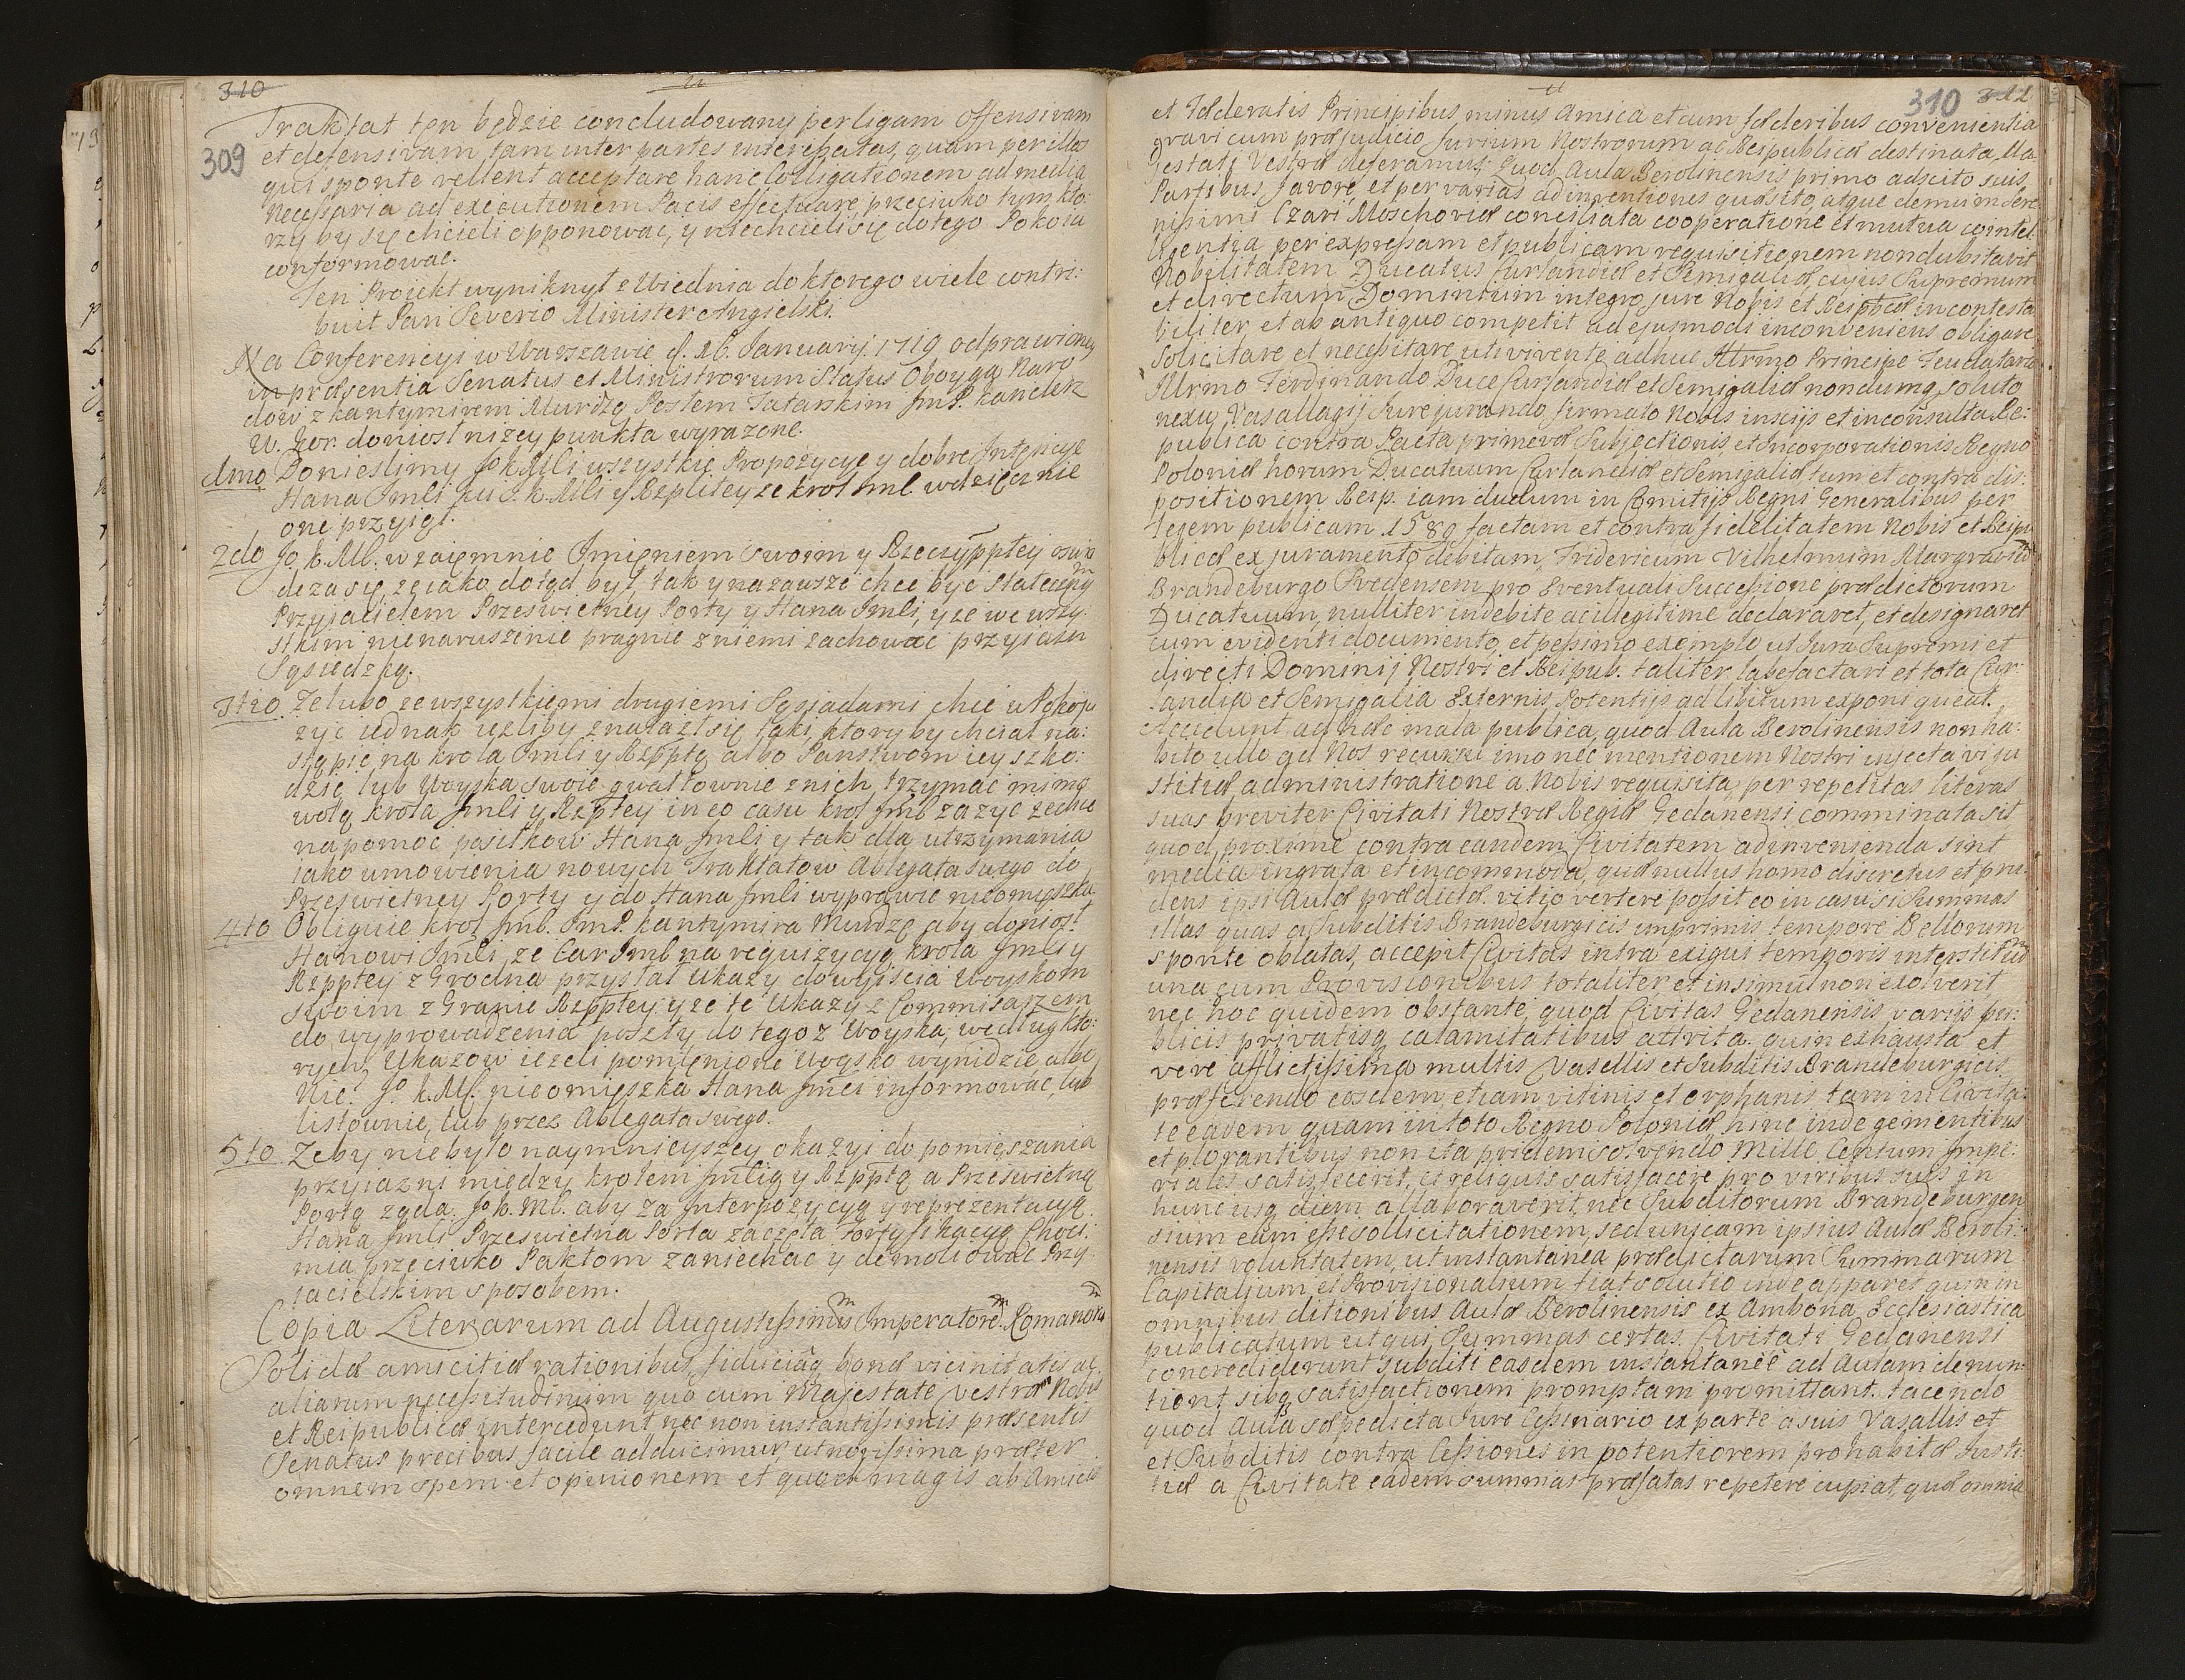 310
309
Traktat ten będzie concludowany per ligam offensivam
et defensivam, tam inter partes interessatas, quam per illos
qui sponte vellent acceptare hanc Colligationem ad media
necessaria ad executionem Pacis effectuare przeciwko tym, kto:
rzy by się chcieli opponować, y niechcieli się do tego Pokoiu
conformować.
Ten Projekt wyniknył z Wiednia do ktorego wiele contri:
buit Pan Severio Minister Angielski.
Na Conferencyi w Warszawie d. 16. January. 1719 odprawioney
in præsentia Senatus et Ministrorum Status Oboyga Naro
dow z Kantymirem Murdzą Posłem Tatarskim JmP. Kanclerz
W. Kor. doniosł niżey punkta wyrażone.
1mo Donieslimy Jo K Mli wszystkie Propozycye y dobre Intencye
Hana Jmli ku J. K. Mli y Rzplitey ze Krol Jml. wdzięcznie
one przyiął.
2do Jo. K. Ml. wzaiemnie Imieniem swoim y Rzeczyppltey oswia
dcza się, ze iako dotąd był, tak y nazawsze chce byc statecznym
Przyjacielem Przeswietney Porty y Hana Jmli, y ze we wszy:
stkim nienaruszenie pragnie z niemi zachować przyiaźń
Sąsiedzką.
3tio Ze lubo ze wszystkiemi drugiemi Sąsiadami chce w Pokoju
życ iednak iezliby znalazł się taki, ktory by chciał na:
stąpic na krola Jmli y Rzpptą albo Panstwom iey szko:
dzic lub Woyska swoie gwałtownie z nich trzymac mimo
wolą krola Jmli y Rzptey in eo casu krol Jml zazyc zechce
na pomoc posiłkow Hana Jmli y tak dla utrzymania
iako umowienia nowych Traktatow Ablegata swego do
Przeswietney Porty y do Hana Jmli wyprawic nieomieszka
4to Obliguie krol Jml. JmP. Kantymira Murdzę aby doniosł
Hanowi Jmli, ze Car Jml na requizycyą krola Jmli y
Rzpptey z Grodna przysłał Ukazy do wyjscia Woyskom
swoim z Granic Rzpptey: y ze te Ukazy z Commisarzem
do wyprowadzenia poszły do tegoz Woyska, według kto:
rych Ukazow iezeli pomienione Woysko wynidzie albo
Nie. Jo. K. Ml. nieomieszka Hana Jmci informować, lub
listownie, lub przez Ablegata swego.
5to Zeby niebyło naymnieyszey okazyi do pomieszania
przyiazni między krolem Jmlią y Rzpptą a Przeswietną
Portą ządа. Jo K. Ml. aby za Interpozycyą y reprezentacyą
Hana Jmli Przeswietna Porta zaczęta Fortyfikacyą Choci:
mia przeciwko Paktom zaniechac y demoliować Przy
iacielskim sposobem.
Copia Literarum ad Augustissimum Imperatorem Romanorum
Solidæ amicitiæ rationibus, fiduciâq bonæ vicinitatis ac
aliarum necessitudinum quæ cum Majestate Vestra Nobis
et Reipublicæ intercedunt nec non instantissimis præsentis
Senatus precibus facile adducimur, ut novissima præter
omnem spem et opinionem et quod magis ab Amicis
310 311
et Fœderatis Principibus minus Amica et cum fœderibus convenientia
gravi cum præjudicio Jurium Nostrorum ac Reipublicæ destinata, Ma
jestati Vestræ deferamus: Quod Aula Berolinensis primo adscito suis
Partibus favore, et per varias adinventiones quæsito, atque demum Sere
nissimi Czari Moschoviæ conciliata cooperatione et mutua cointel
ligentia per expressam et publicam requisitionem non dubitavit
Nobilitatem Ducatus Curlandiæ et Semigaliæ, cujus Supremum
et directum Dominium integro jure Nobis et Reipbcæ incontesta
biliter et ab antiquo competit ad ejusmodi inconveniens obligare
Solicitare et necessitare, uti vivente adhuc Illrmo Principe Feudatario
Illrmo Ferdinando Duce Curlandiæ et Semigaliæ nondumq soluto
nexu Vasallagij Jurejurando firmato Nobis inscijs et inconsulta Re:
publica contra Pacta primevæ Subjectionis et Incorporationis Regno
Poloniæ horum Ducatuum Curlandiæ et Semigaliæ tum et contra dis:
positionem Reip. iam dudum in Comitijs Regni Generalibus per
legem publicam 1589 factam et contra fidelitatem Nobis et Reipu
blicæ ex juramento debitam, Fridericum Vilhelmum Margravium
Brandeburgo Svedensem pro Eventuali Successione prædictorum
Ducatuum, nulliter indebite ac illegitime declararet, et designaret
cum evidenti documento, et pessimo exemplo ut Jura Supremi et
directi Dominij Nostri et Reipub. taliter labefactari et tota Cur
landia et Semigalia Externis Potentijs ad libitum exponi queat.
Accedunt ad hæc mala publica, quod Aula Berolinensis non ha:
bito ullo ad Nos recursu imo nec mentionem Nostri injecta vi ju
stitiæ, administratione a Nobis requisita, per repetitas literas
suas breviter Civitati Nostræ Regiæ Gedanensi comminata sit
quod proxime contra eandem Civitatem adinvenienda sint
media ingrata et incommoda, quæ nullus homo discretus et pru
dens ipsi Aulæ prædictæ vitio vertere possit eo in casu si Summas
illas quas a Subditis Brandeburgicis imprimis tempore Bellorum
sponte oblatas, accepit Civitas intra exigui temporis interstitium
una cum Provisionibus totaliter et insimul non exolverit
nec hoc quidem obstante, quod Civitas Gedanensis varijs pu:
blicis privatisq calamitatibus attrita quin exhausta et
vere afflictissima multis Vasellis et Subditis Brandeburgicis
præferendo eosdem etiam vitinis et orphanis tam in Civita:
te eadem quam in toto Regno Poloniæ, hinc inde gementibus
et plorantibus non ita pridem solvendo Mille Centum Impe:
riales satisfecerit, et reliquis satisfacere pro viribus suis in
hunc usq diem allaboraverit, nec Subditorum Brandeburgen
sium eam esse sollicitationem, sed unicam ipsius Aulæ Beroli:
nensis voluntatem, ut instantanea prædictarum Summarum
Capitalium et Provisionalium fiat solutio inde apparet quin in
omnibus ditionibus Aulæ Berolinensis ex Ambona Ecclesiastica
publicatum ut qui Summas certas Civitati Gedanensi
concrediderunt subditi easdem instantanee ad Aulam denun:
tient, sibiq satisfactionem promptam promittant. tacendo
quod Aula sæpedicta Jure Cessionario ex parte a suis Vasallis et
et Subditis contra Cessiones in potentiorem prohabitæ Justi:
tiæ a Civitate eadem summas præfatas repetere cupiat, quæ omnia